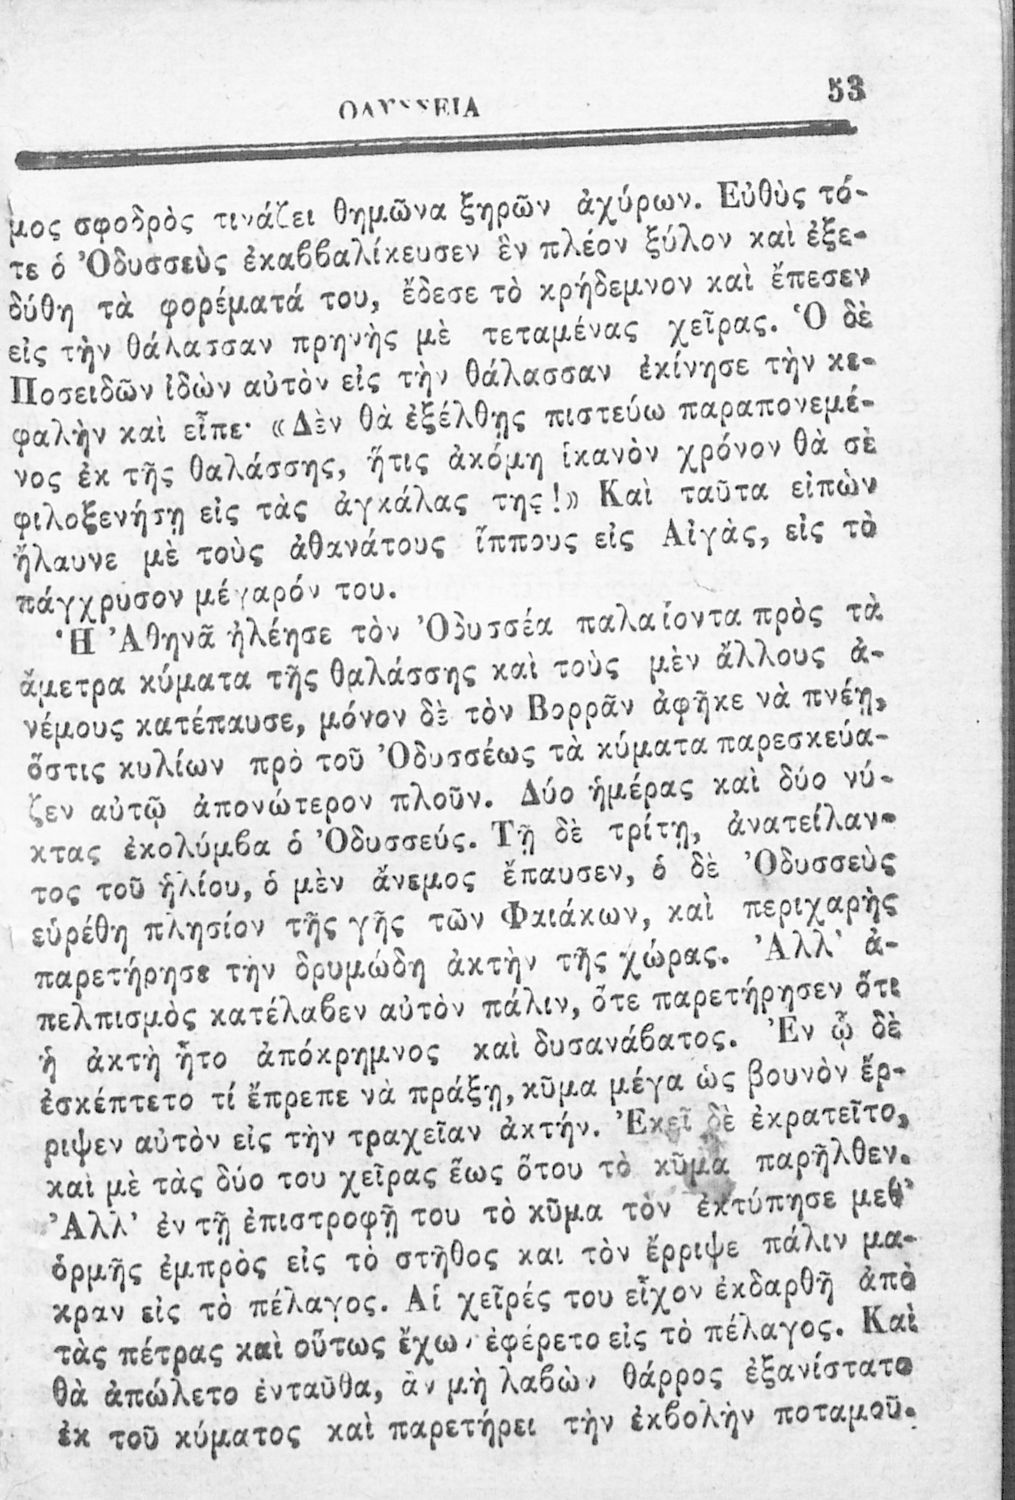 ΟΔΥΣΣΕΙΑ
53
μος σφοδρὸς τινάζει θημῶνα ξηρῶν ἀχύρων. Εὐθὺς τό-
τε ὁ Ὀδυσσεὺς ἐκαββαλίκευσεν ἓν πλέον ξύλον καὶ ἐξε-
δύθη τὰ φορέματά του, ἔδεσε τὸ κρήδεμνον καὶ ἔπεσεν
εἰς τὴν θάλασσαν πρηνὴς μὲ τεταμένας χεῖρας. Ὁ δὲ
Ποσειδῶν ἰδὼν αὐτὸν εἰς τὴν θάλασσαν ἐκίνησε τὴν κε-
φαλὴν καὶ εἶπε· «Δὲν θὰ ἐξέλθῃς πιστεύω παραπονεμέ-
νος ἐκ τῆς θαλάσσης, ἥτις ἀκόμη ἱκανὸν χρόνον θὰ σὲ
φιλοξενήσῃ εἰς τὰς ἀγκάλας της!» Καὶ ταῦτα εἰπὼν
ἤλαυνε μὲ τοὺς ἀθανάτους ἵππους εἰς Αἰγὰς, εἰς τὸ
πάγχρυσον μέγαρόν του.
Ἡ Ἀθηνᾶ ἠλέησε τὸν Ὀδυσσέα παλαίοντα πρὸς τὰ
ἄμετρα κύματα τῆς θαλάσσης καὶ τοὺς μὲν ἄλλους ἀ-
νέμους κατέπαυσε, μόνον δὲ τὸν Βορρᾶν ἀφῆκε νὰ πνέῃ,
ὅστις κυλίων πρὸ τοῦ Ὀδυσσέως τὰ κύματα παρεσκεύα-
ζεν αὐτῷ ἀπονώτερον πλοῦν. Δύο ἡμέρας καὶ δύο νύ-
κτας ἐκολύμβα ὁ Ὀδυσσεύς. Τῇ δὲ τρίτῃ, ἀνατείλαν-
τος τοῦ ἡλίου, ὁ μὲν ἄνεμος ἔπαυσεν, ὁ δὲ Ὀδυσσεὺς
εὑρέθη πλησίον τῆς γῆς τῶν Φαιάκων, καὶ περιχαρὴς
παρετήρησε τὴν δρυμώδη ἀκτὴν τῆς χώρας. Ἀλλ' ἀ-
πελπισμὸς κατέλαβεν αὐτὸν πάλιν, ὅτε παρετήρησεν ὅτι
ἡ ἀκτὴ ἦτο ἀπόκρημνος καὶ δυσανάβατος. Ἐν ᾧ δὲ
ἐσκέπτετο τί ἔπρεπε νὰ πράξῃ, κῦμα μέγα ὡς βουνὸν ἔρ-
ριψεν αὐτὸν εἰς τὴν τραχεῖαν ἀκτήν. Ἐκεῖ δὲ ἐκρατεῖτο,
καὶ μὲ τὰς δύο του χεῖρας ἕως ὅτου τὸ κῦμα παρῆλθεν.
Ἀλλ' ἐν τῇ ἐπιστροφῇ του τὸ κῦμα τὸν ἐκτύπησε μεθ'
ὁρμῆς ἐμπρὸς εἰς τὸ στῆθος καὶ τὸν ἔρριψε πάλιν μα-
κραν εἰς τὸ πέλαγος. Αἱ χεῖρές του εἶχον ἐκδαρθῆ ἀπὸ
τὰς πέτρας καὶ οὕτως ἔχων ἐφέρετο εἰς τὸ πέλαγος. Καὶ
θὰ ἀπώλετο ἐνταῦθα, ἂν μὴ λαβὼν θάρρος ἐξανίστατο
ἐκ τοῦ κύματος καὶ παρετήρει τὴν ἐκβολὴν ποταμοῦ.